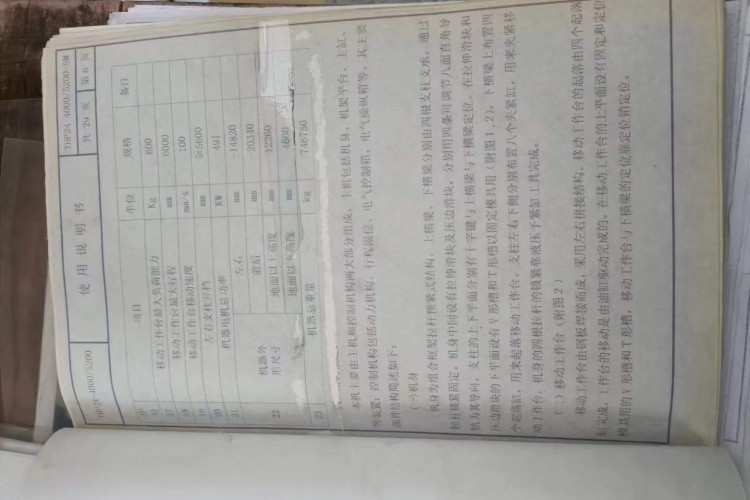 THP24-4000/5200
使 用 说 明 书
THP24-4000/5200-SM
共 29 页 第 6 页
项目 单位 规格 备注
移动工作台最大负荷能力 Kg 600
17 移动工作台最大行程 mm 6000
18 移动工作台移动速度 mm/s 100
19 左右支柱开档 mm ≥5600
20 机器电机总功率 KW 491
21 左右 mm 14820
22 机器外形尺寸 前后 mm 20340
地面以上高度 mm 12260
地面以下高度 mm 4600
23 机器总重量 Kg 746750
本机主要由主机和控制机构两大部分组成,主机包括机身、机架平台、主缸、
等装置;控制机构包括动力机构、行程限位、电气控制箱、电气操纵箱等,其主要
部件结构简述如下:
(一)机身
机身为组合框架拉杆预紧式结构,上横梁、下横梁分别由四根支柱支承,通过
拉杆锁紧固定,机身中间设有拉伸滑块及压边滑块,分别用四条可调节八面直角导
轨为其导向,支柱的上下平面分别有十字键与上横梁与下横梁定位。在拉伸滑块和
压边滑块的下平面设有V形槽和T形槽以固定模具用(附图1,2),下横梁上布置四
个起落缸,用来起落移动工作台,支柱左右下侧分别布置八个夹紧缸,用来夹紧移
动工作台,机身的四根拉杆的锁紧靠液压予紧缸工具完成。
(二)移动工作台(附图2)
移动工作台由钢板焊接而成,采用左右拼接结构。移动工作台的起落由四个起落
缸完成,工作台的移动是由油缸驱动完成的。在移动工作台的上平面设有固定和定位
模具用的V形槽和T形槽,移动工作台与下横梁的定位靠定位销定位。